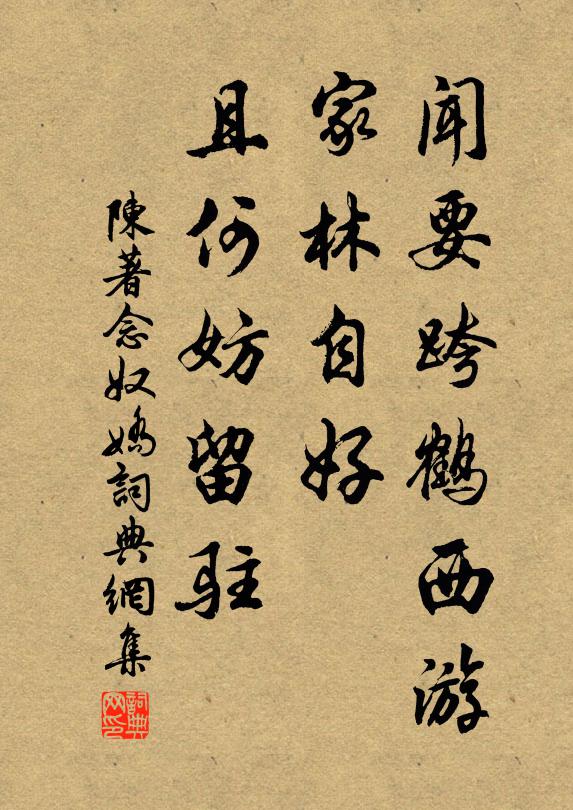 闻要跨鹤西游
家林自好
且何妨留驻
陳著念奴嬌詞典網集
詞典网印